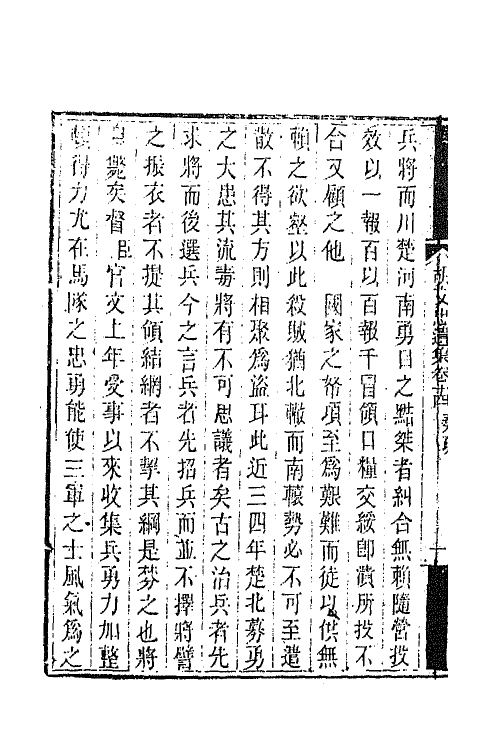 兵將而川楚河南勇目之點桀者糾合無賴隨營投
效以一報百以百報千冒領口糧交綏卽潰所投不
合又顧之他　國家之帑項至爲艱難而徒以供無
賴之欲壑以此殺賊猶北轍而南轅勢必不可至遣
散不得其方則相聚爲盜耳此近三四年楚北募勇
之大患其流毒將有不可思議者矣古之治兵者先
求將而後選兵今之言兵者先招兵而並不擇將譬
之振衣者不提其領結網者不挈其綱是棼之也將
自斃矣督臣官文上年受事以來收集兵勇力加整
頓得力尤在馬隊之忠勇能使三軍之士風氣爲之
胡文忠公遺集卷十四　奏疏